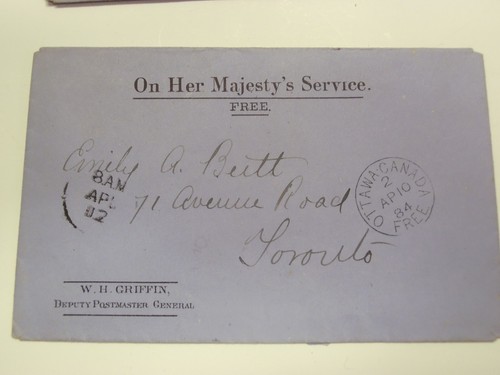 On Her Majesty's Service.
FREE.
Emily A. Britt
71 Avenue Road
Toronto
8 AM
AP
12
OTTAWA·CANADA
2
AP 10
84
FREE
W. H. GRIFFIN,
DEPUTY POSTMASTER GENERAL